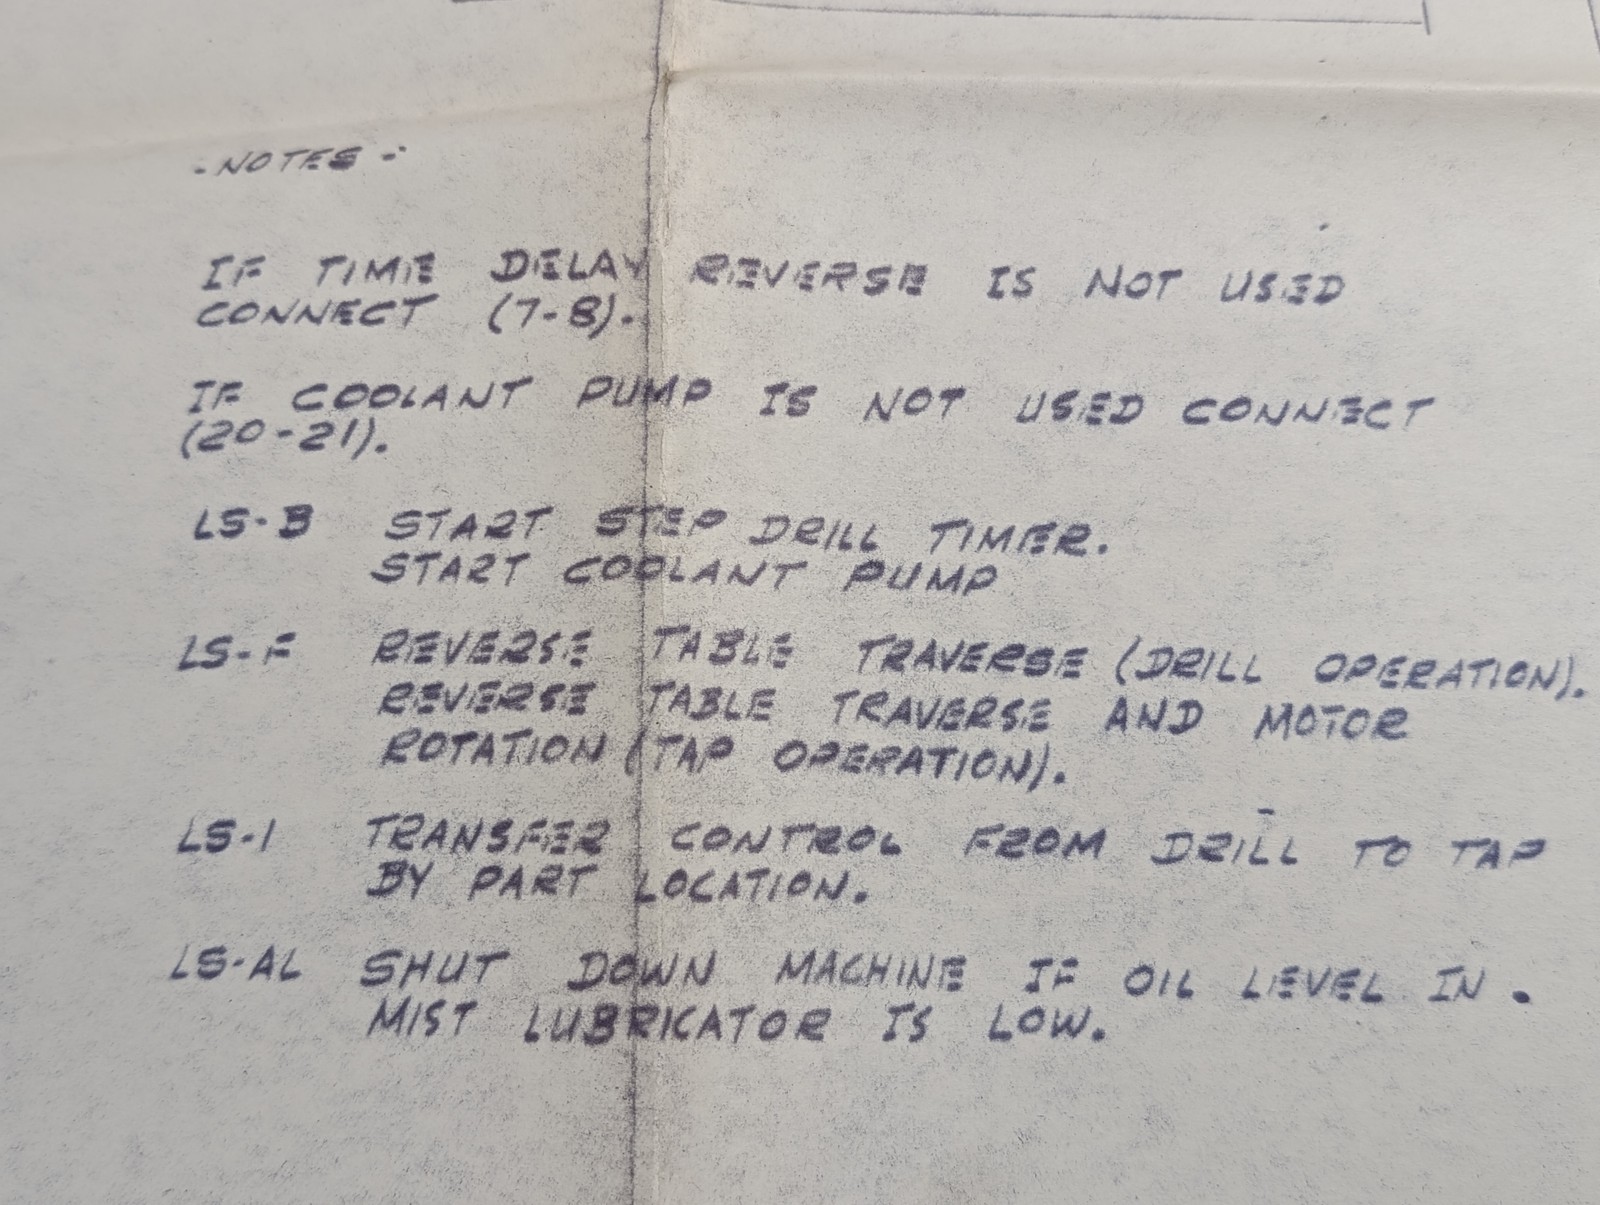 - NOTES -
IF TIME DELAY REVERSE IS NOT USED
CONNECT (7-8).
IF COOLANT PUMP IS NOT USED CONNECT
(20-21).
LS-B START STEP DRILL TIMER.
START COOLANT PUMP
LS-F REVERSE TABLE TRAVERSE (DRILL OPERATION).
REVERSE TABLE TRAVERSE AND MOTOR
ROTATION (TAP OPERATION).
LS-1 TRANSFER CONTROL FROM DRILL TO TAP
BY PART LOCATION.
LS-AL SHUT DOWN MACHINE IF OIL LEVEL IN .
MIST LUBRICATOR IS LOW.